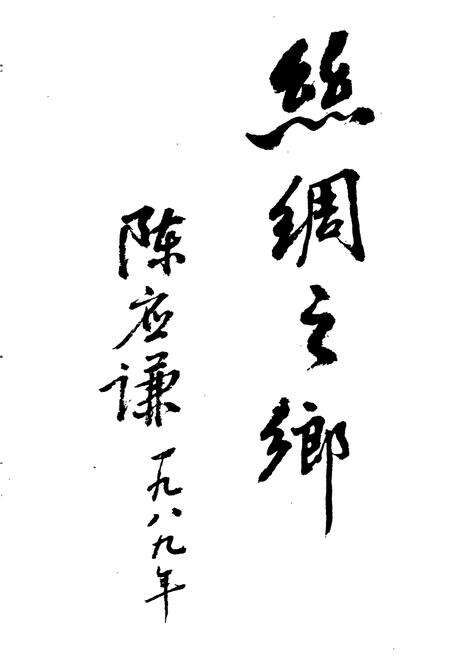 絲綢之鄉
陈应谦
一九八九年